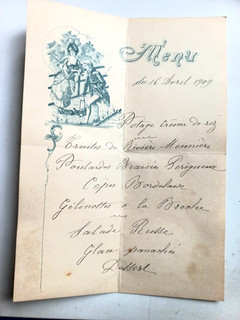 Menu
du 16 Avril 1909
Potage Crème de riz
Truites de Rivière Meunière
Poulardes Braisées Périgueux
Cèpes Bordelaise
Gélinottes à la Broche
Salade Russe
Glace panachée
Dessert